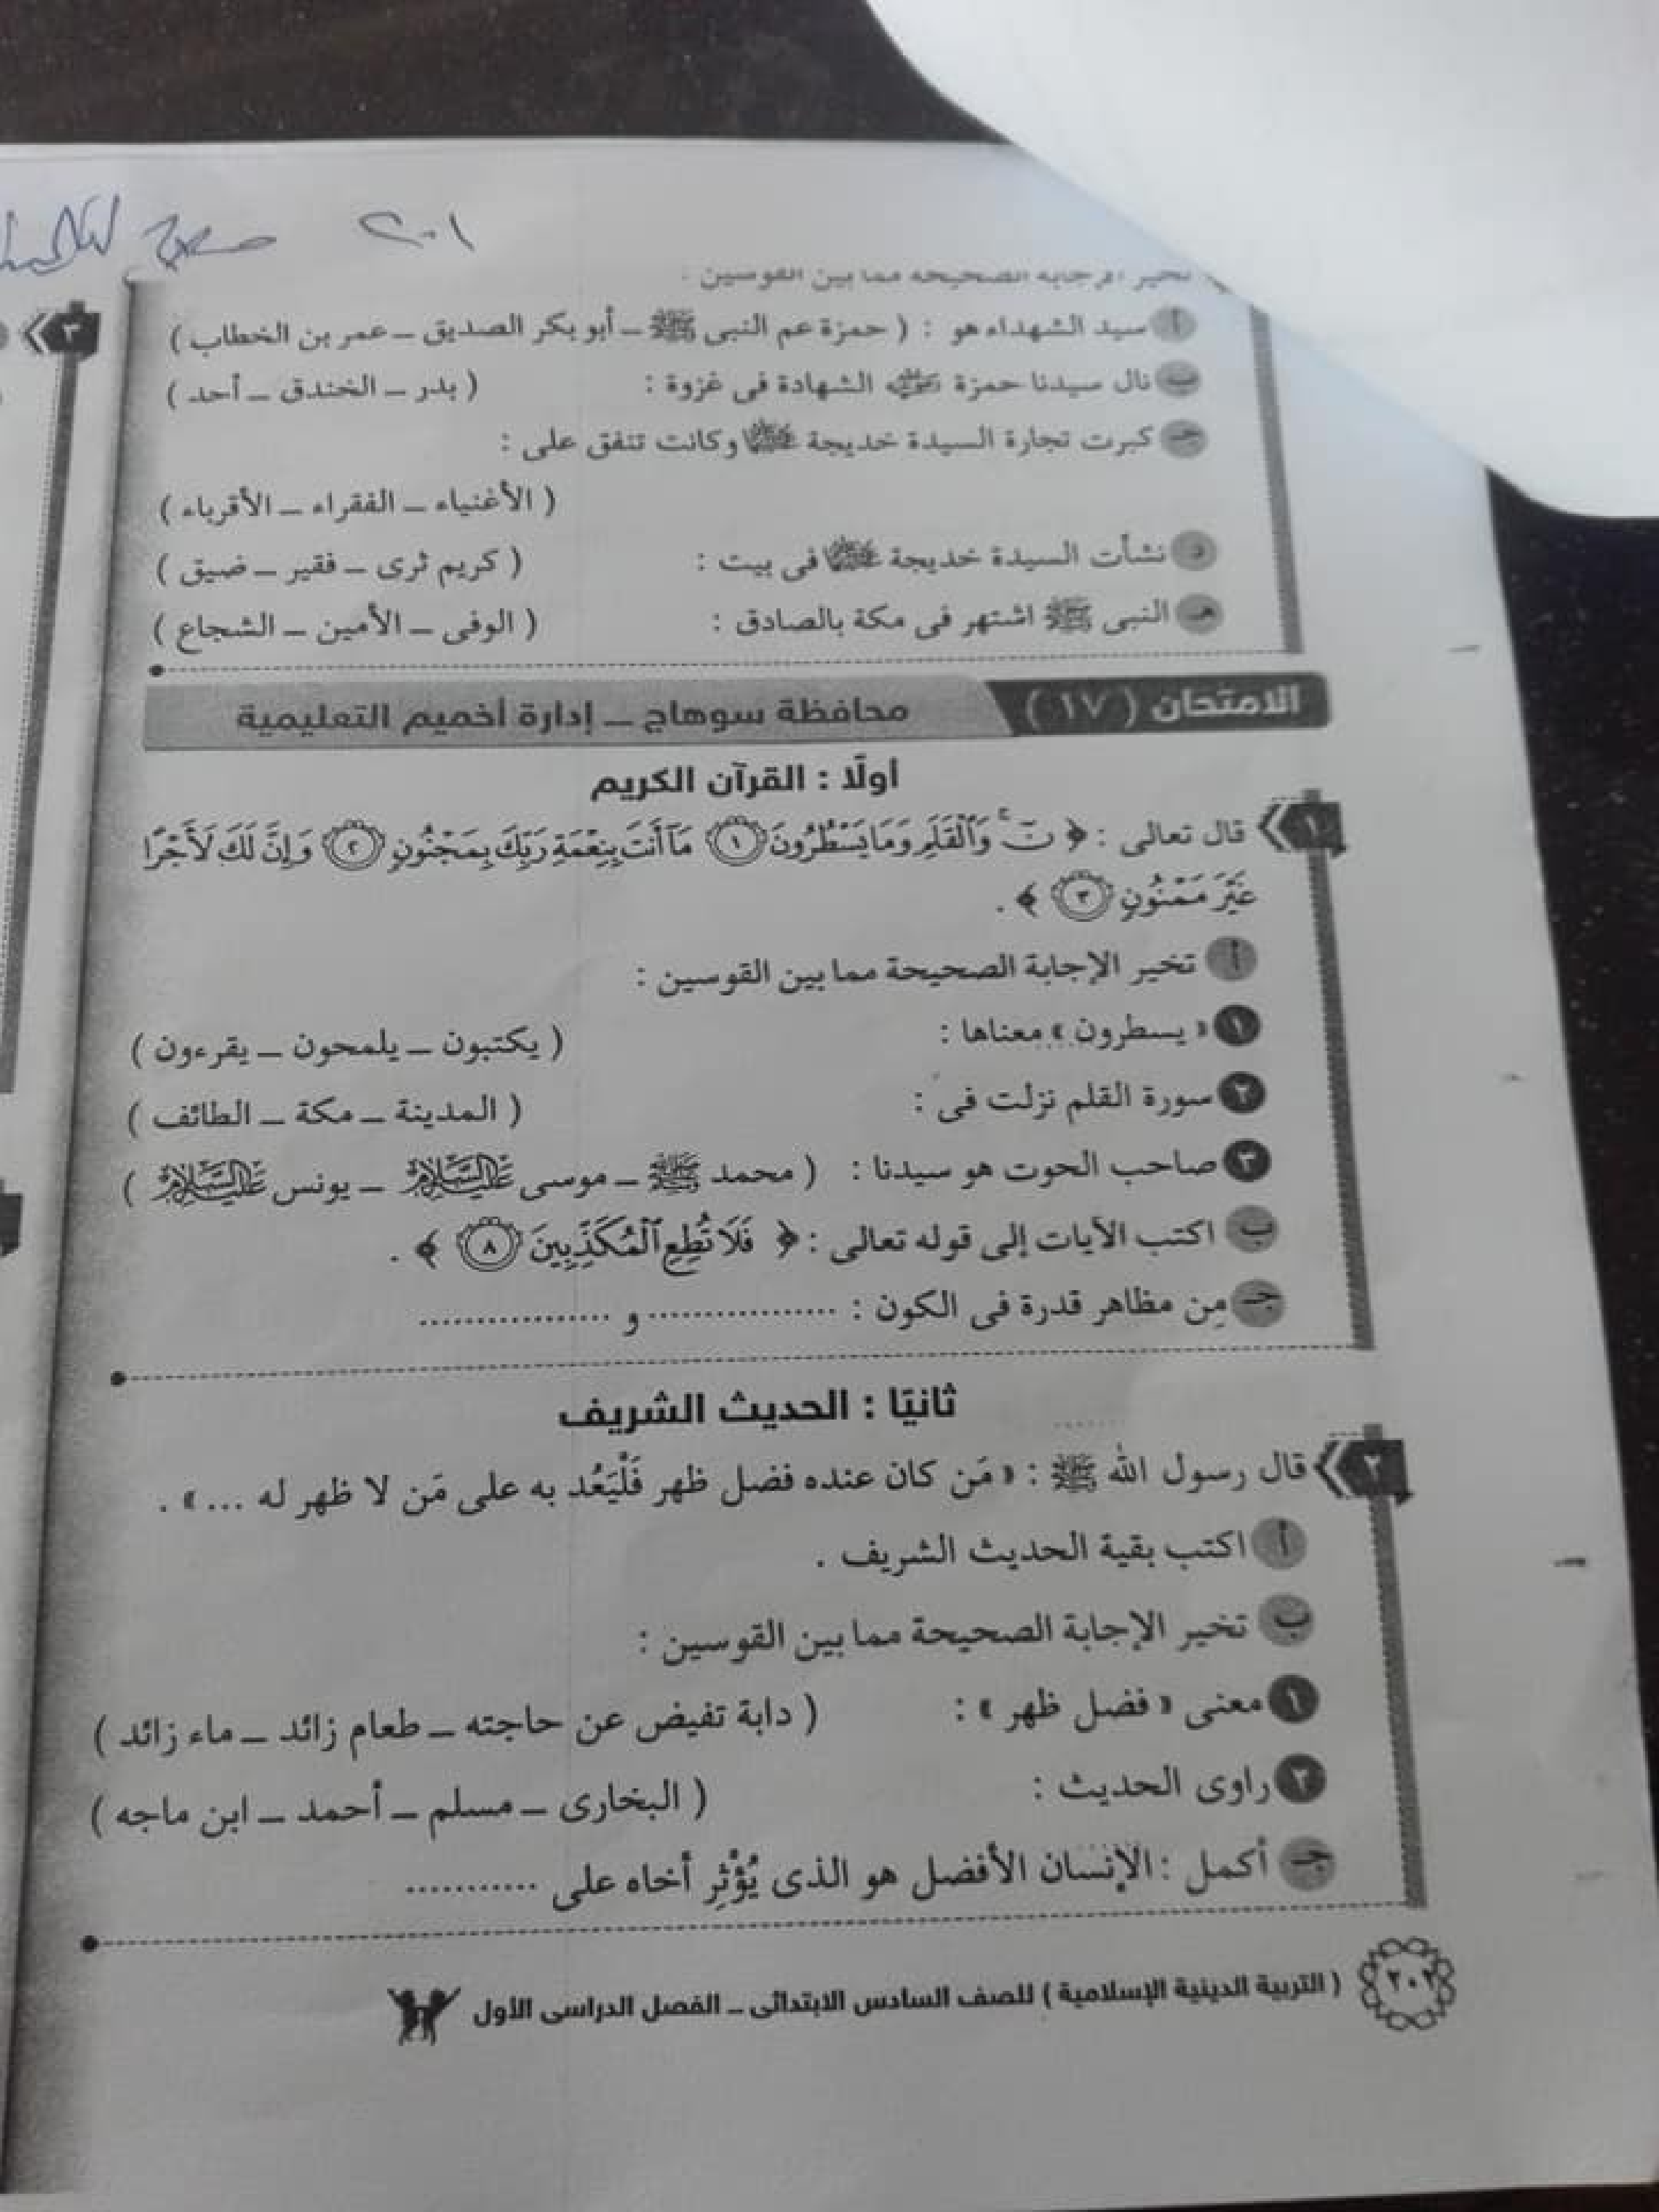 ٢٠١
تخير الإجابة الصحيحة مما بين القوسين :
أ سيد الشهداء هو : ( حمزة عم النبى ﷺ – أبو بكر الصديق – عمر بن الخطاب )
ب نال سيدنا حمزة رضي الله عنه الشهادة فى غزوة : ( بدر – الخندق – أحد )
جـ كبرت تجارة السيدة خديجة رضي الله عنها وكانت تنفق على :
( الأغنياء – الفقراء – الأقرباء )
د نشأت السيدة خديجة رضي الله عنها فى بيت : ( كريم ثرى – فقير – ضيق )
هـ النبى ﷺ اشتهر فى مكة بالصادق : ( الوفى – الأمين – الشجاع )
الامتحان ( ١٧ ) محافظة سوهاج – إدارة أخميم التعليمية
أولًا : القرآن الكريم
١ قال تعالى : ﴿ نٓ ۚ وَٱلْقَلَمِ وَمَا يَسْطُرُونَ ١ مَآ أَنتَ بِنِعْمَةِ رَبِّكَ بِمَجْنُونٍ ٢ وَإِنَّ لَكَ لَأَجْرًا
غَيْرَ مَمْنُونٍ ٣ ﴾ .
أ تخير الإجابة الصحيحة مما بين القوسين :
١ « يسطرون » معناها : ( يكتبون – يلمحون – يقرءون )
٢ سورة القلم نزلت فى : ( المدينة – مكة – الطائف )
٣ صاحب الحوت هو سيدنا : ( محمد ﷺ – موسى عليه السلام – يونس عليه السلام )
ب اكتب الآيات إلى قوله تعالى : ﴿ فَلَا تُطِعِ ٱلْمُكَذِّبِينَ ٨ ﴾ .
جـ مِن مظاهر قدرة فى الكون : .................. و ..................
ثانيًا : الحديث الشريف
٢ قال رسول الله ﷺ : « مَن كان عنده فضل ظهر فَلْيَعُد به على مَن لا ظهر له ... » .
أ اكتب بقية الحديث الشريف .
ب تخير الإجابة الصحيحة مما بين القوسين :
١ معنى « فضل ظهر » : ( دابة تفيض عن حاجته – طعام زائد – ماء زائد )
٢ راوى الحديث : ( البخارى – مسلم – أحمد – ابن ماجه )
جـ أكمل : الإنسان الأفضل هو الذى يُؤْثِر أخاه على ............
٢٠٢ ( التربية الدينية الإسلامية ) للصف السادس الابتدائى – الفصل الدراسى الأول
٣